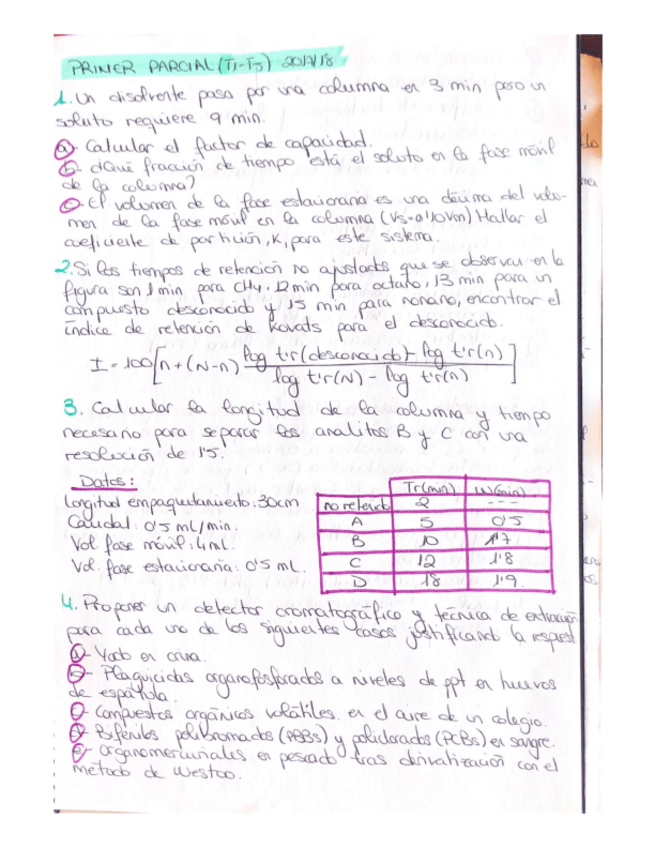 PRIMER PARCIAL (T1-T5) 2017/18
1. Un disolvente pasa por una columna en 3 min pero un
soluto requiere 9 min.
a- Calcular el factor de capacidad.
b- ¿Qué fracción de tiempo está el soluto en la fase móvil
de la columna?
c- El volumen de la fase estacionaria es una décima del volu-
men de la fase móvil en la columna (Vs=0'10Vm) Hallar el
coeficiente de partición, K, para este sistema.
2. Si los tiempos de retención no ajustados que se observan en la
figura son 1 min para CH4, 12 min para octano, 13 min para un
compuesto desconocido y 15 min para nonano, encontrar el
índice de retención de Kovats para el desconocido.
I = 100 [n + (N-n) log t'r (desconocido) - log t'r(n) ]
log t'r(N) - log t'r(n)
3. Calcular la longitud de la columna y tiempo
necesario para separar los analitos B y C con una
resolución de 1'5.
Datos:
Longitud empaquetamiento: 30 cm
Caudal: 0'5 mL/min.
Vol. fase móvil: 4 mL.
Vol. fase estacionaria: 0'5 mL.
Tr(min) W(min)
no retenido 2 ---
A 5 0'5
B 10 1'7
C 12 1'8
D 18 1'9
4. Proponer un detector cromatográfico y técnica de extracción
para cada uno de los siguientes casos justificando la respuest
a- Yodo en orina.
b- Plaguicidas organofosforados a niveles de ppt en huevos
de
c- Compuestos orgánicos volátiles en el aire de un colegio.
d- Bifenilos polibromados (PBBs) y policlorados (PCBs) en sangre.
e- Organomercuriales en pescado tras derivatización con el
método de Westoo.